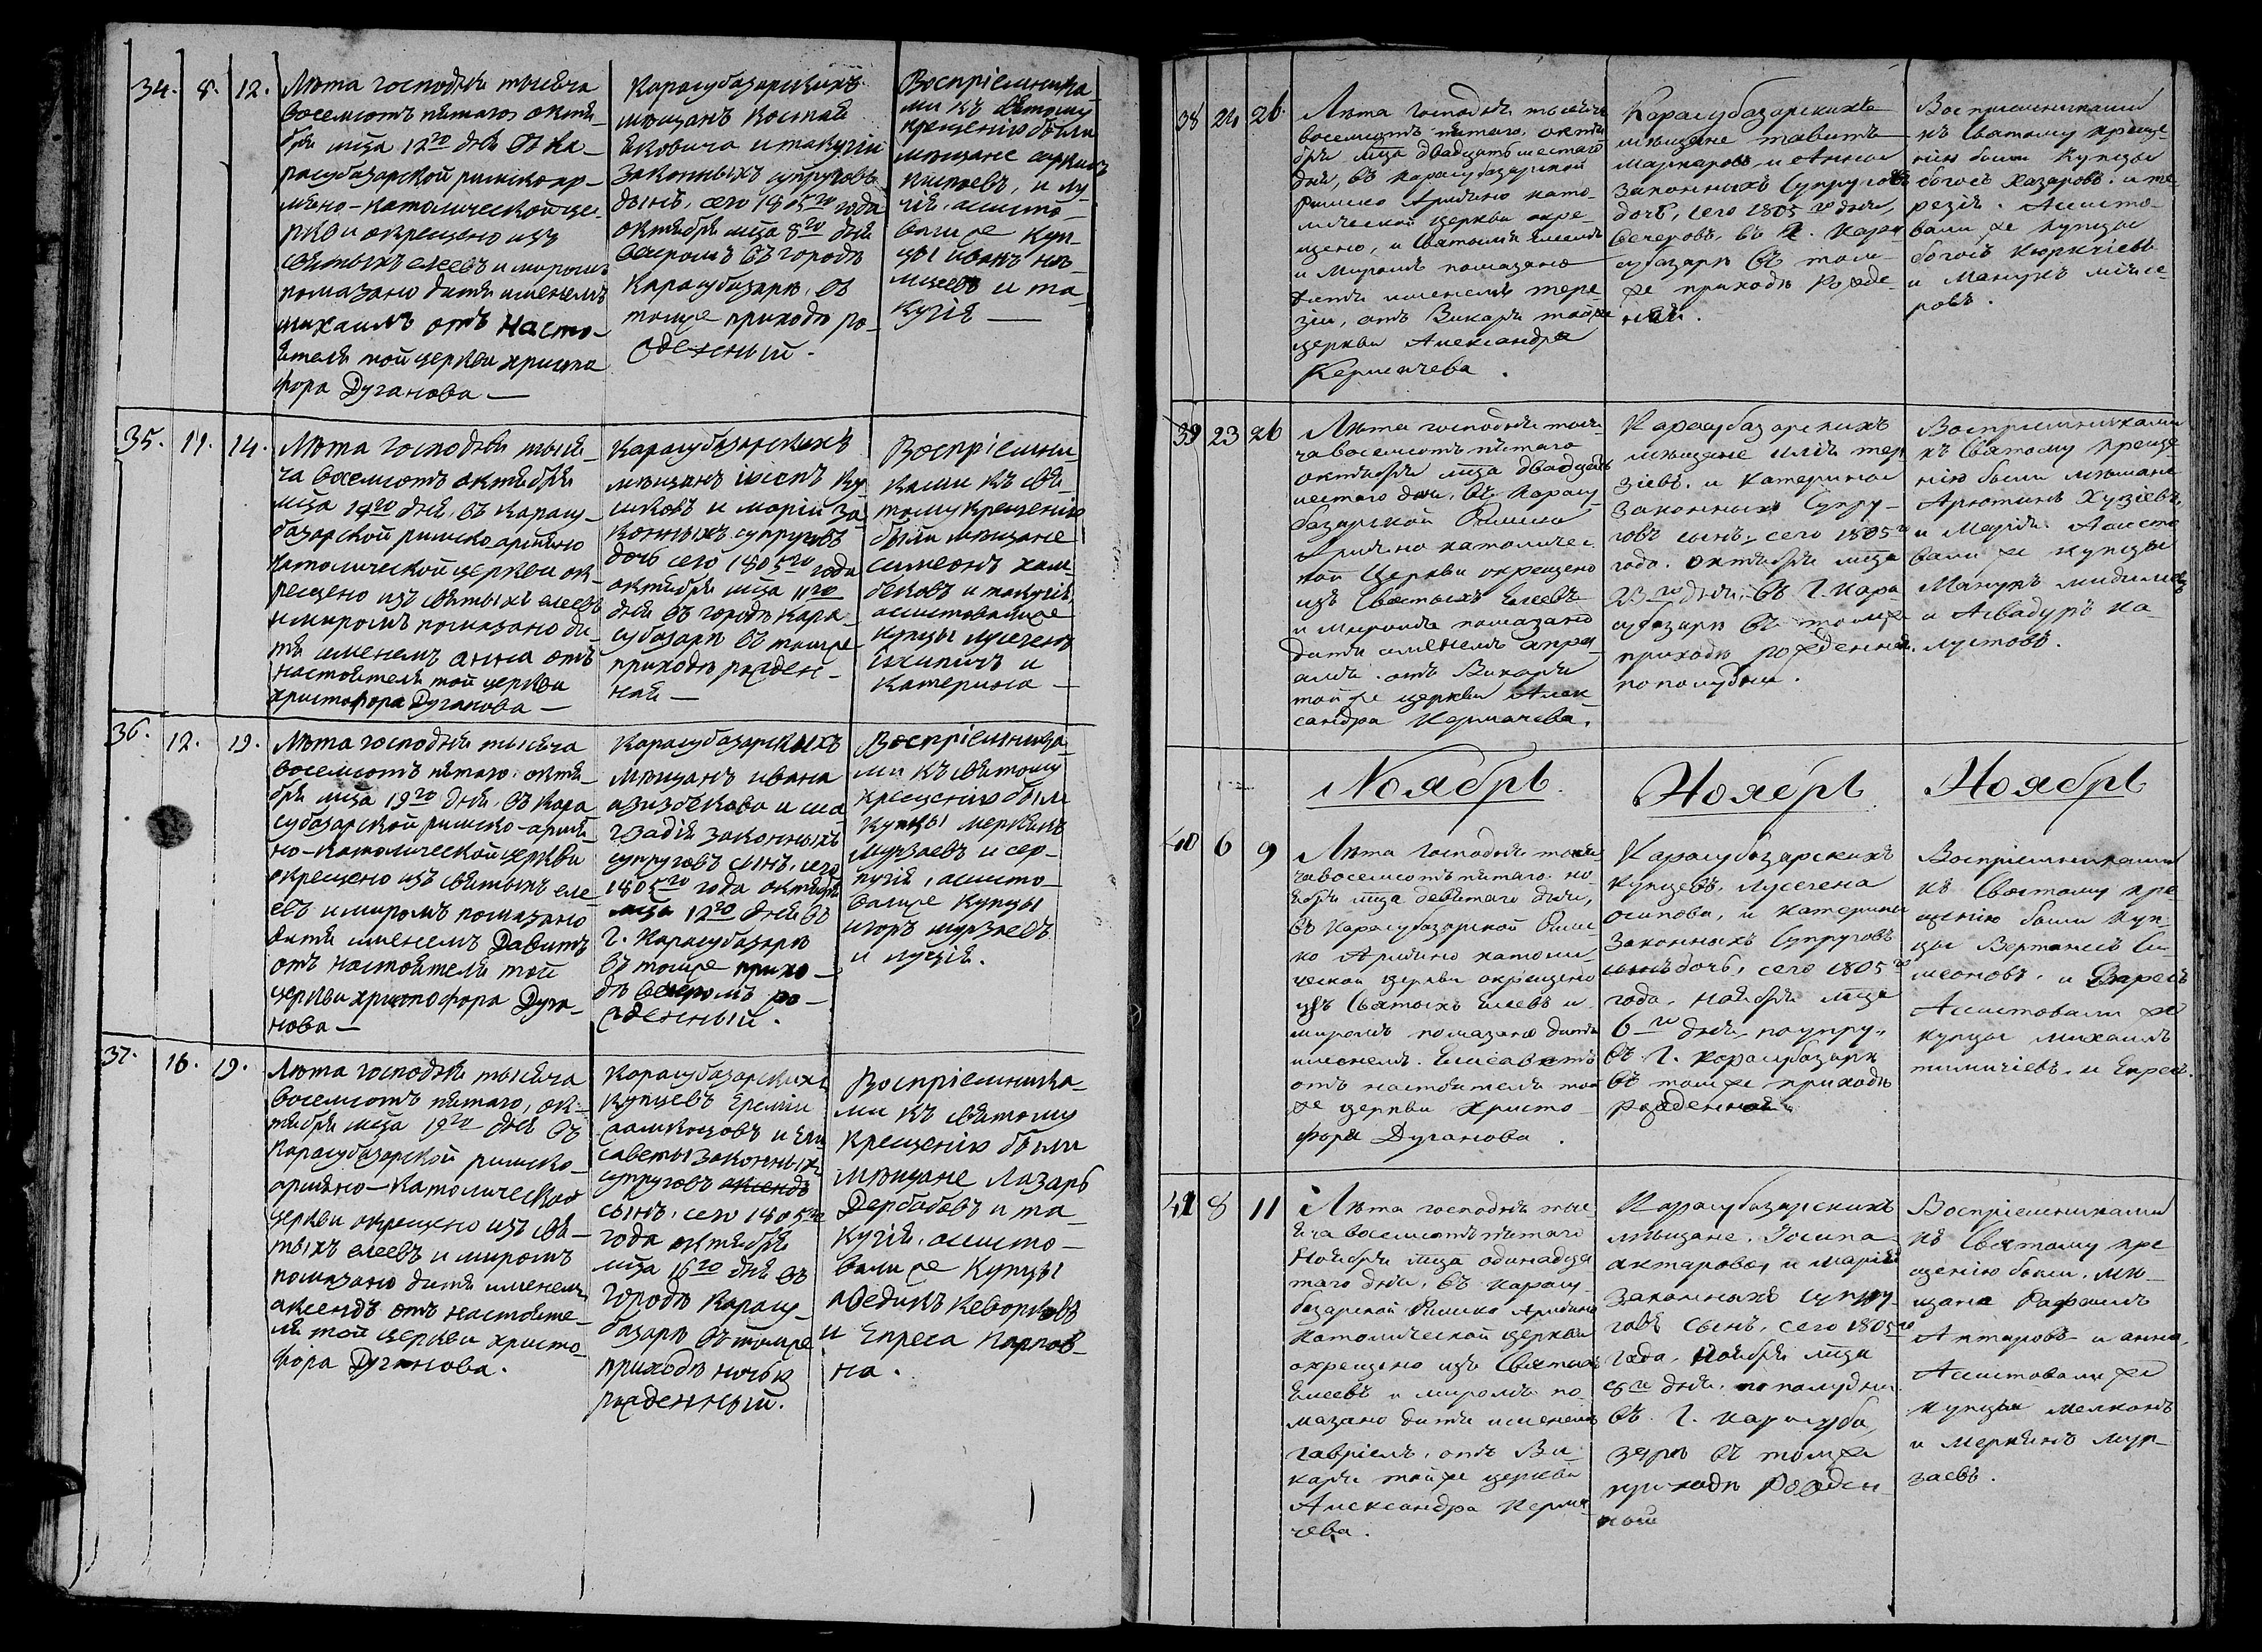 34. 8. 12.
Лѣта господня тысяча
восемсотъ пятаго октя-
бря мца 12го дня въ ка-
расубазарской римскоар-
мяно-католической це-
ркви окрещено изъ
святыхъ елеевъ и миромъ
помазано дитя именемъ
михаилъ отъ насто-
ятеля той церкви христо
фора Дуганова —
Карасубазарскихъ
мѣщанъ
Яковича и такугіи
законныхъ супруговъ
сынъ, сего 1805го года
октября мца 8го дня
вечеромъ въ городѣ
Карасубазарѣ, въ
томже приходѣ ро-
жденный.
Воспріемника-
ми къ святому
крещенію были
мѣщане
и лу-
чія, ассисто-
валиже куп-
цы иванъ
и та-
кугія —
35. 11. 14.
Лѣта господня тыся-
ча восемсотъ октября
мца 14го дня, въ карасу-
базарской римско армяно
католической церкви ок-
рещено изъ святыхъ елеевъ
и миромъ помазано ди-
тя именемъ анна отъ
настоятеля той церкви
христофора Дуганова —
Карасубазарскихъ
мѣщанъ
и маріи за-
конныхъ супруговъ
дочь сего 1805го года
октября мца 11го
дня въ городѣ кара-
субазарѣ въ томже
приходѣ рожден-
ная —
Воспріемни-
ками къ свя-
тому крещенію
были мѣщане
симеонъ
и такугія,
ассистовалиже
купцы лусегенъ
и
Катерина —
36. 12. 19.
Лѣта господня тысяча
восемсотъ пятаго, октя-
бря мца 19го дня, въ кара
субазарской римско-армя-
но-католической церкви
окрещено изъ святыхъ еле-
евъ и миромъ помазано
дитя именемъ Давитъ
отъ настоятеля той
церкви христофора Дуга-
нова —
Карасубазарскихъ
мѣщанъ ивана
азизбекова и ша-
гзадія законныхъ
супруговъ сынъ, сего
1805го года октября
мца 12го дня въ
г. Карасубазарѣ
въ томже прихо-
дѣ вечеромъ ро-
жденный.
Воспріемника-
ми къ святому
крещенію были
купцы меркинъ
мурзаевъ и сер-
пугія, ассисто-
валиже купцы
игоръ мурзаевъ
и луція.
37. 16. 19.
Лѣта господня тысяча
восемсотъ пятаго, ок-
тября мца 19го дня въ
карасубазарской римско-
армяно-католической
церкви окрещено изъ свя-
тыхъ елеевъ и миромъ
помазано дитя именемъ
аксендъ отъ настояте-
ля той церкви христо-
фора Дуганова.
Карасубазарскихъ
купцевъ Ереміи
и Ели
саветы законныхъ
супруговъ аксендъ
сынъ, сего 1805го
года октября
мца 16го дня въ
городѣ Карасу-
базарѣ въ томже
приходѣ ночью
рожденный.
Воспріемника-
ми къ святому
крещенію были
мѣщане Лазарь
Дербабовъ и та-
кугія, ассисто-
валиже купцы
аведикъ Кеворковъ
и Епреса Карпов-
на.
38 24 26.
Лѣта господня тысяча
восемсотъ пятаго, октя
бря мца двадцать шестаго
дня, въ карасубазарской
Римско Армяно като-
лической церкви окре-
щено, и Святымъ Елеемъ
и Миромъ помазано
дитя именемъ тере-
зія, отъ Викарія той же
церкви Александра
Кермекчева.
Карасубазарскихъ
мѣщане тавитъ
Маркаровъ и Анны
законныхъ Супруговъ
дочь, сего 1805го дня,
вечеровъ, въ г. Кара
субазарѣ въ том-
же приходѣ рожде-
ная.
Воспріемниками
къ Святому креще-
нію были купцы
богосъ Хазаровъ. и те-
резія. Ассисто-
вали же купцы
богосъ Кюркчіевъ
и Манукъ
ровъ.
39 23 26
Лѣта господня тыся-
ча восемсотъ пятаго
октября мца двадцать
шестаго дня, въ Карасу
базарской Римско
Армяно католичес-
кой Церкви окрещено
изъ Святыхъ Елеевъ
и Миромъ помазано
дитя именемъ
отъ Викарія
той же церкви Алек-
сандра Кермекчева.
Карасубазарскихъ
мѣщане тер
зіевъ. и Катерины
законныхъ Супру-
говъ сынъ, сего 1805го
года. октября мца
23го дня, въ г. Кара
субазарѣ въ томже
приходѣ рожденный.
пополудни.
Воспріемниками
къ Святому креще-
нію были мѣщане
Арютинъ Хузіевъ,
и Марія. Ассисто
вали же купцы
Манукъ
и Асвадуръ Ка-
лустовъ.
Ноябрь. Ноябрь. Ноябрь
40 6 9
Лѣта господня тыся-
ча восемсотъ пятаго. но-
ября мца девятаго дня,
въ Карасубазарской Римс-
ко Армяно католи-
ческой церкви окрещено
изъ Святыхъ Елеевъ и
миромъ помазано дитя
именемъ. Елисаветъ
отъ настоятеля той
же церкви Христо-
фора Дуганова.
Карасубазарскихъ
купцевъ, лусегена
осипова, и Катерины
законныхъ Супруговъ
сынъ дочь, сего 1805го
года. ноября мца
6го дня, поутру,
въ г. Карасубазарѣ
въ томже приходѣ
рожденная.
Воспріемниками
къ Святому кре-
щенію были куп-
цы Вертанесъ Си-
меоновъ. и
Ассистовали же
купцы михаилъ
и Епрес.
41 8 11
Лѣта господня тыс-
яча восемсотъ пятаго
Ноября мца одинадца
таго дня, въ карасу-
базарской Римско Армяно
католической церкви
окрещено изъ Святыхъ
Елеевъ и миромъ по-
мазано дитя именемъ
гавріелъ, отъ Ви-
карія той же церкви
Александра Керме-
чева.
Карасубазарскихъ
мѣщане. Іосипа
актарова, и маріи
законныхъ супру-
говъ сынъ, сего 1805го
года. Ноября мца
8го дня. пополудни
въ г. Карасуба
зарѣ въ томже
приходѣ рожден
ный
Воспріемниками
къ Святому кре
щенію были. мѣ-
щане Рафаилъ
Актаровъ и анна,
Ассистовали же
купцы мелконъ
и меркинъ мур-
заевъ.